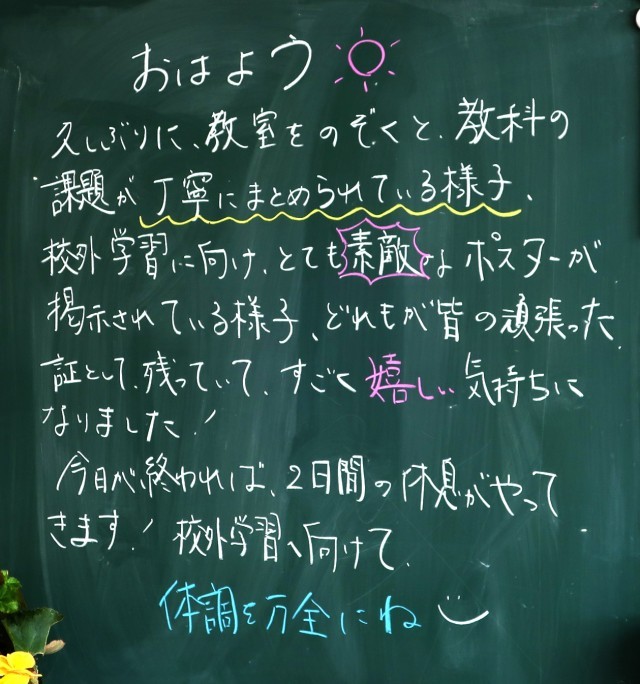 おはよう
久しぶりに、教室をのぞくと、教科の
課題が丁寧にまとめられている様子、
校外学習に向け、とても素敵なポスターが
掲示されている様子、どれもが皆の頑張った
証として、残っていて、すごく嬉しい気持ちに
なりました!
今日が終われば、2日間の休息がやって
きます!校外学習へ向けて、
体調を万全にね